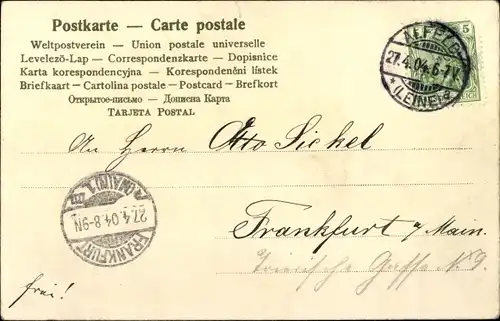 Postkarte — Carte postale
Weltpostverein — Union postale universelle
Levelező-Lap — Correspondenzkarte — Dopisnice
Karta korespondencyjna — Korespondenční lístek
Briefkaart — Cartolina postale — Postcard — Brefkort
Открытое-письмо — Дописна Карта
TARJETA POSTAL
5
ALFELD
27.4.04.6-7V.
* (LEINE) a
An Herrn Otto Sickel
Frankfurt a/Main.
Trierische Gasse No 9.
FRANKFURT
27.4.04.8-9N
(MAIN) 1.
frei!